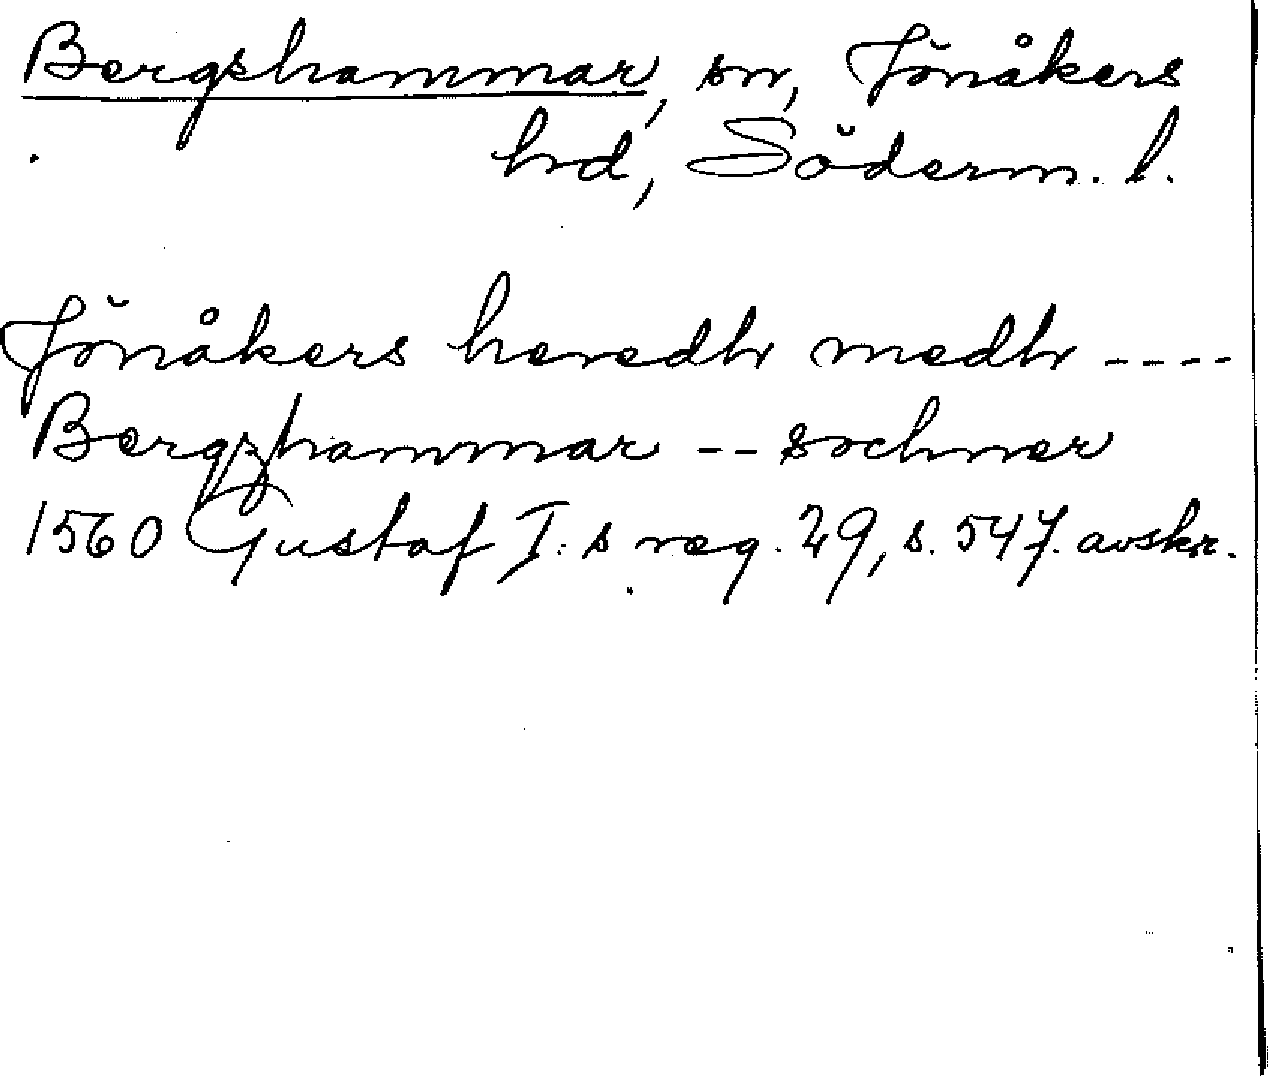 Bergshammar, sn, Jönåkers
hrd, Söderm. l.
Jönåkers heredh medh ----
Bergzhammar -- sochner
1560 Gustaf I:s reg. 29, s. 547. avskr.